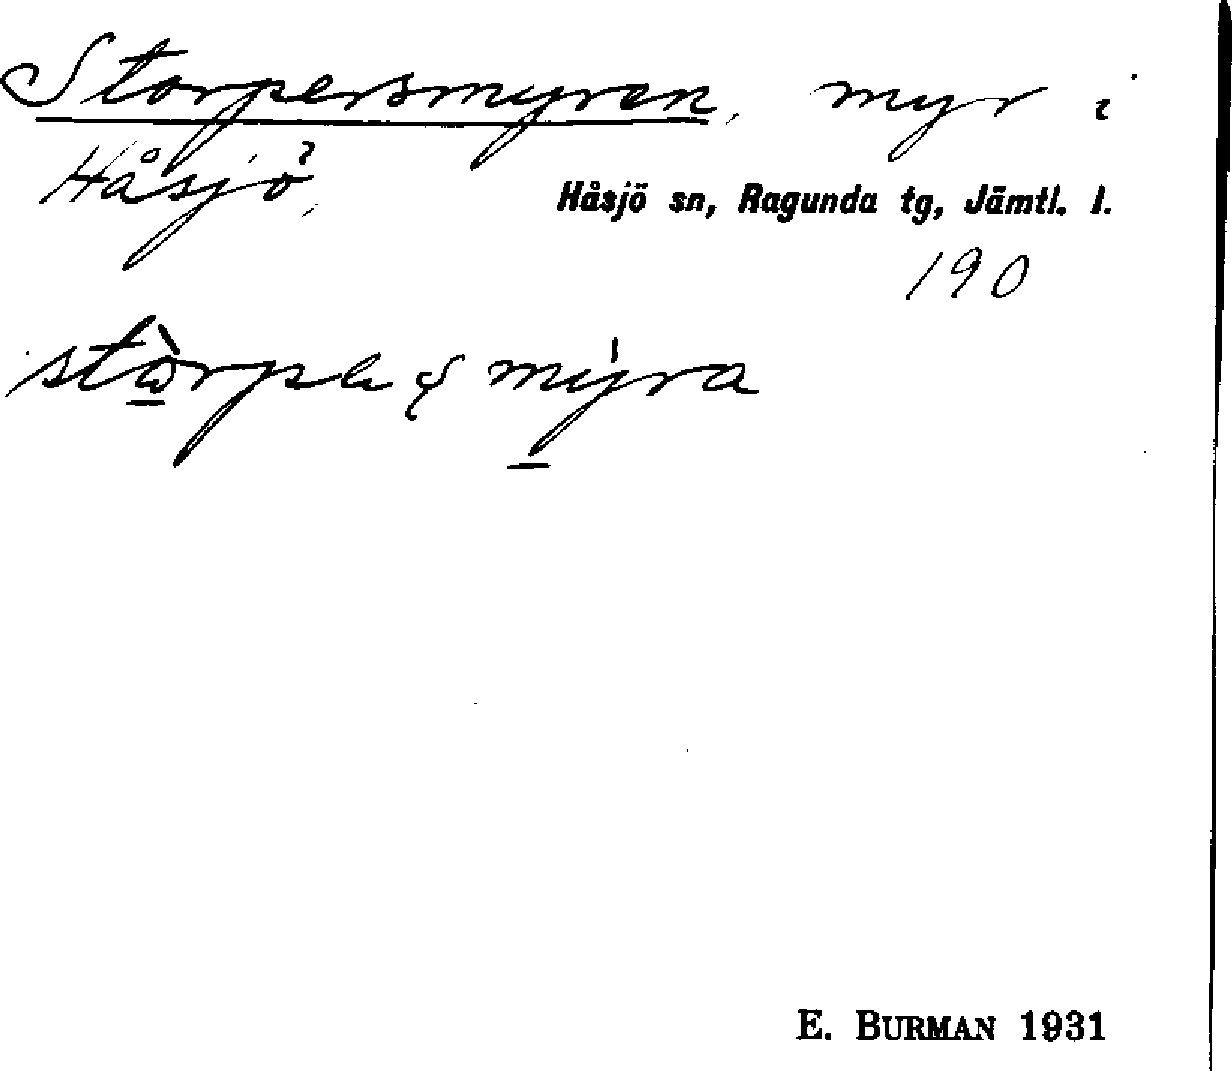 Storpersmyren, myr i
Håsjö,
Håsjö sn, Ragunda tg, Jämtl. l.
190
E. BURMAN 1931